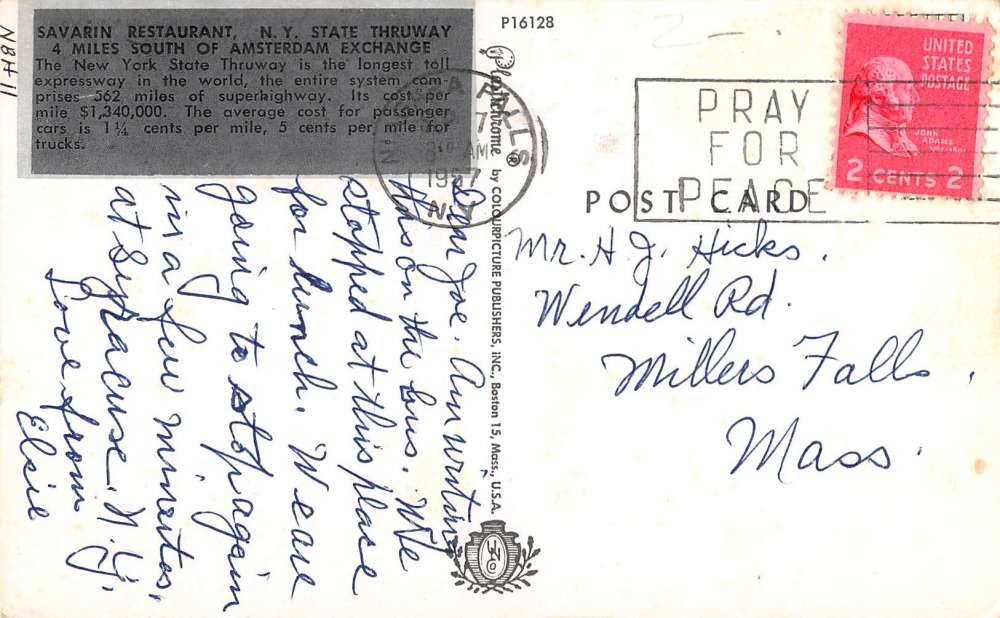 NBH 11
SAVARIN RESTAURANT, N. Y. STATE THRUWAY
4 MILES SOUTH OF AMSTERDAM EXCHANGE
The New York State Thruway is the longest toll
expressway in the world, the entire system com-
prises 562 miles of superhighway. Its cost per
mile $1,340,000. The average cost for passenger
cars is 1¼ cents per mile, 5 cents per mile for
trucks.
P16128
Plastichrome ® by COLOURPICTURE PUBLISHERS, INC., Boston 15, Mass., U.S.A.
FALLS
7
AM
1957
N.Y.
PRAY
FOR
PEACE
UNITED
STATES
POSTAGE
JOHN
ADAMS
2 CENTS 2
POST CARD
Dear Joe. Am writing
this on the bus. We
stopped at this place
for lunch. We are
going to stop again
in a few minutes,
at Syracuse. N.Y.
Love from
Elsie
Mr. H. J. Hicks.
Wendell Rd.
Millers Falls,
Mass.